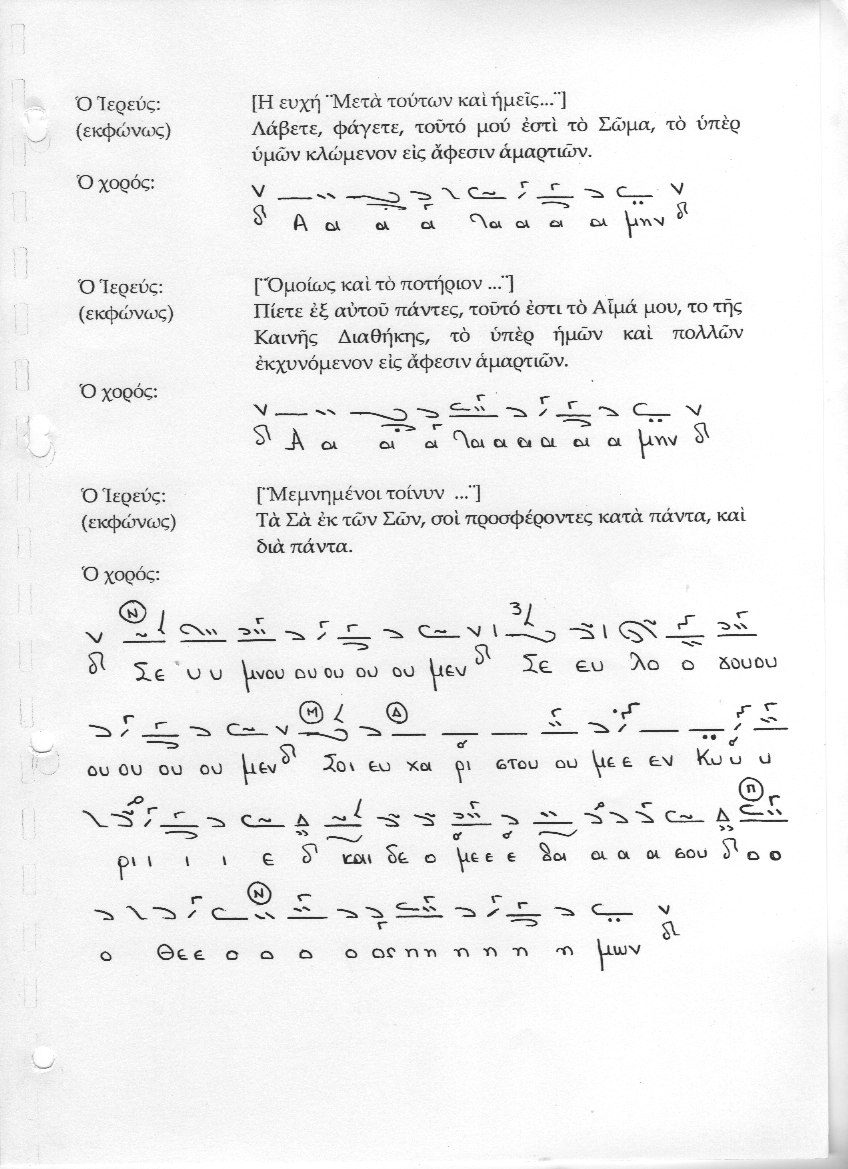 Ὁ Ἱερεύς: [Η ευχή ¨Μετὰ τούτων καὶ ἡμεῖς...¨]
(εκφώνως) Λάβετε, φάγετε, τοῦτό μού ἐστὶ τὸ Σῶμα, τὸ ὑπὲρ
ὑμῶν κλώμενον εἰς ἄφεσιν ἁμαρτιῶν.
Ὁ χορός:
Α α α α α α α α μην
Ὁ Ἱερεύς: [¨Ὁμοίως καὶ τὸ ποτήριον ...¨]
(εκφώνως) Πίετε ἐξ αὐτοῦ πάντες, τοῦτό ἐστι τὸ Αἷμά μου, το τῆς
Καινῆς Διαθήκης, τὸ ὑπὲρ ἡμῶν καὶ πολλῶν
ἐκχυνόμενον εἰς ἄφεσιν ἁμαρτιῶν.
Ὁ χορός:
Α α α α α α α α α α μην
Ὁ Ἱερεύς: [¨Μεμνημένοι τοίνυν ...¨]
(εκφώνως) Τὰ Σὰ ἐκ τῶν Σῶν, σοὶ προσφέροντες κατὰ πάντα, καὶ
διὰ πάντα.
Ὁ χορός:
Σε υ υ μνου ου ου ου ου μεν Σε ευ λο ο γουου
ου ου ου ου μεν Σοι ευ χα ρι στου ου με ε εν Κυ υ υ
ρι ι ι ι ε και δε ο με ε ε θα α α α σου ο ο
ο Θε ε ο ο ο ο ος η η η η η η μων